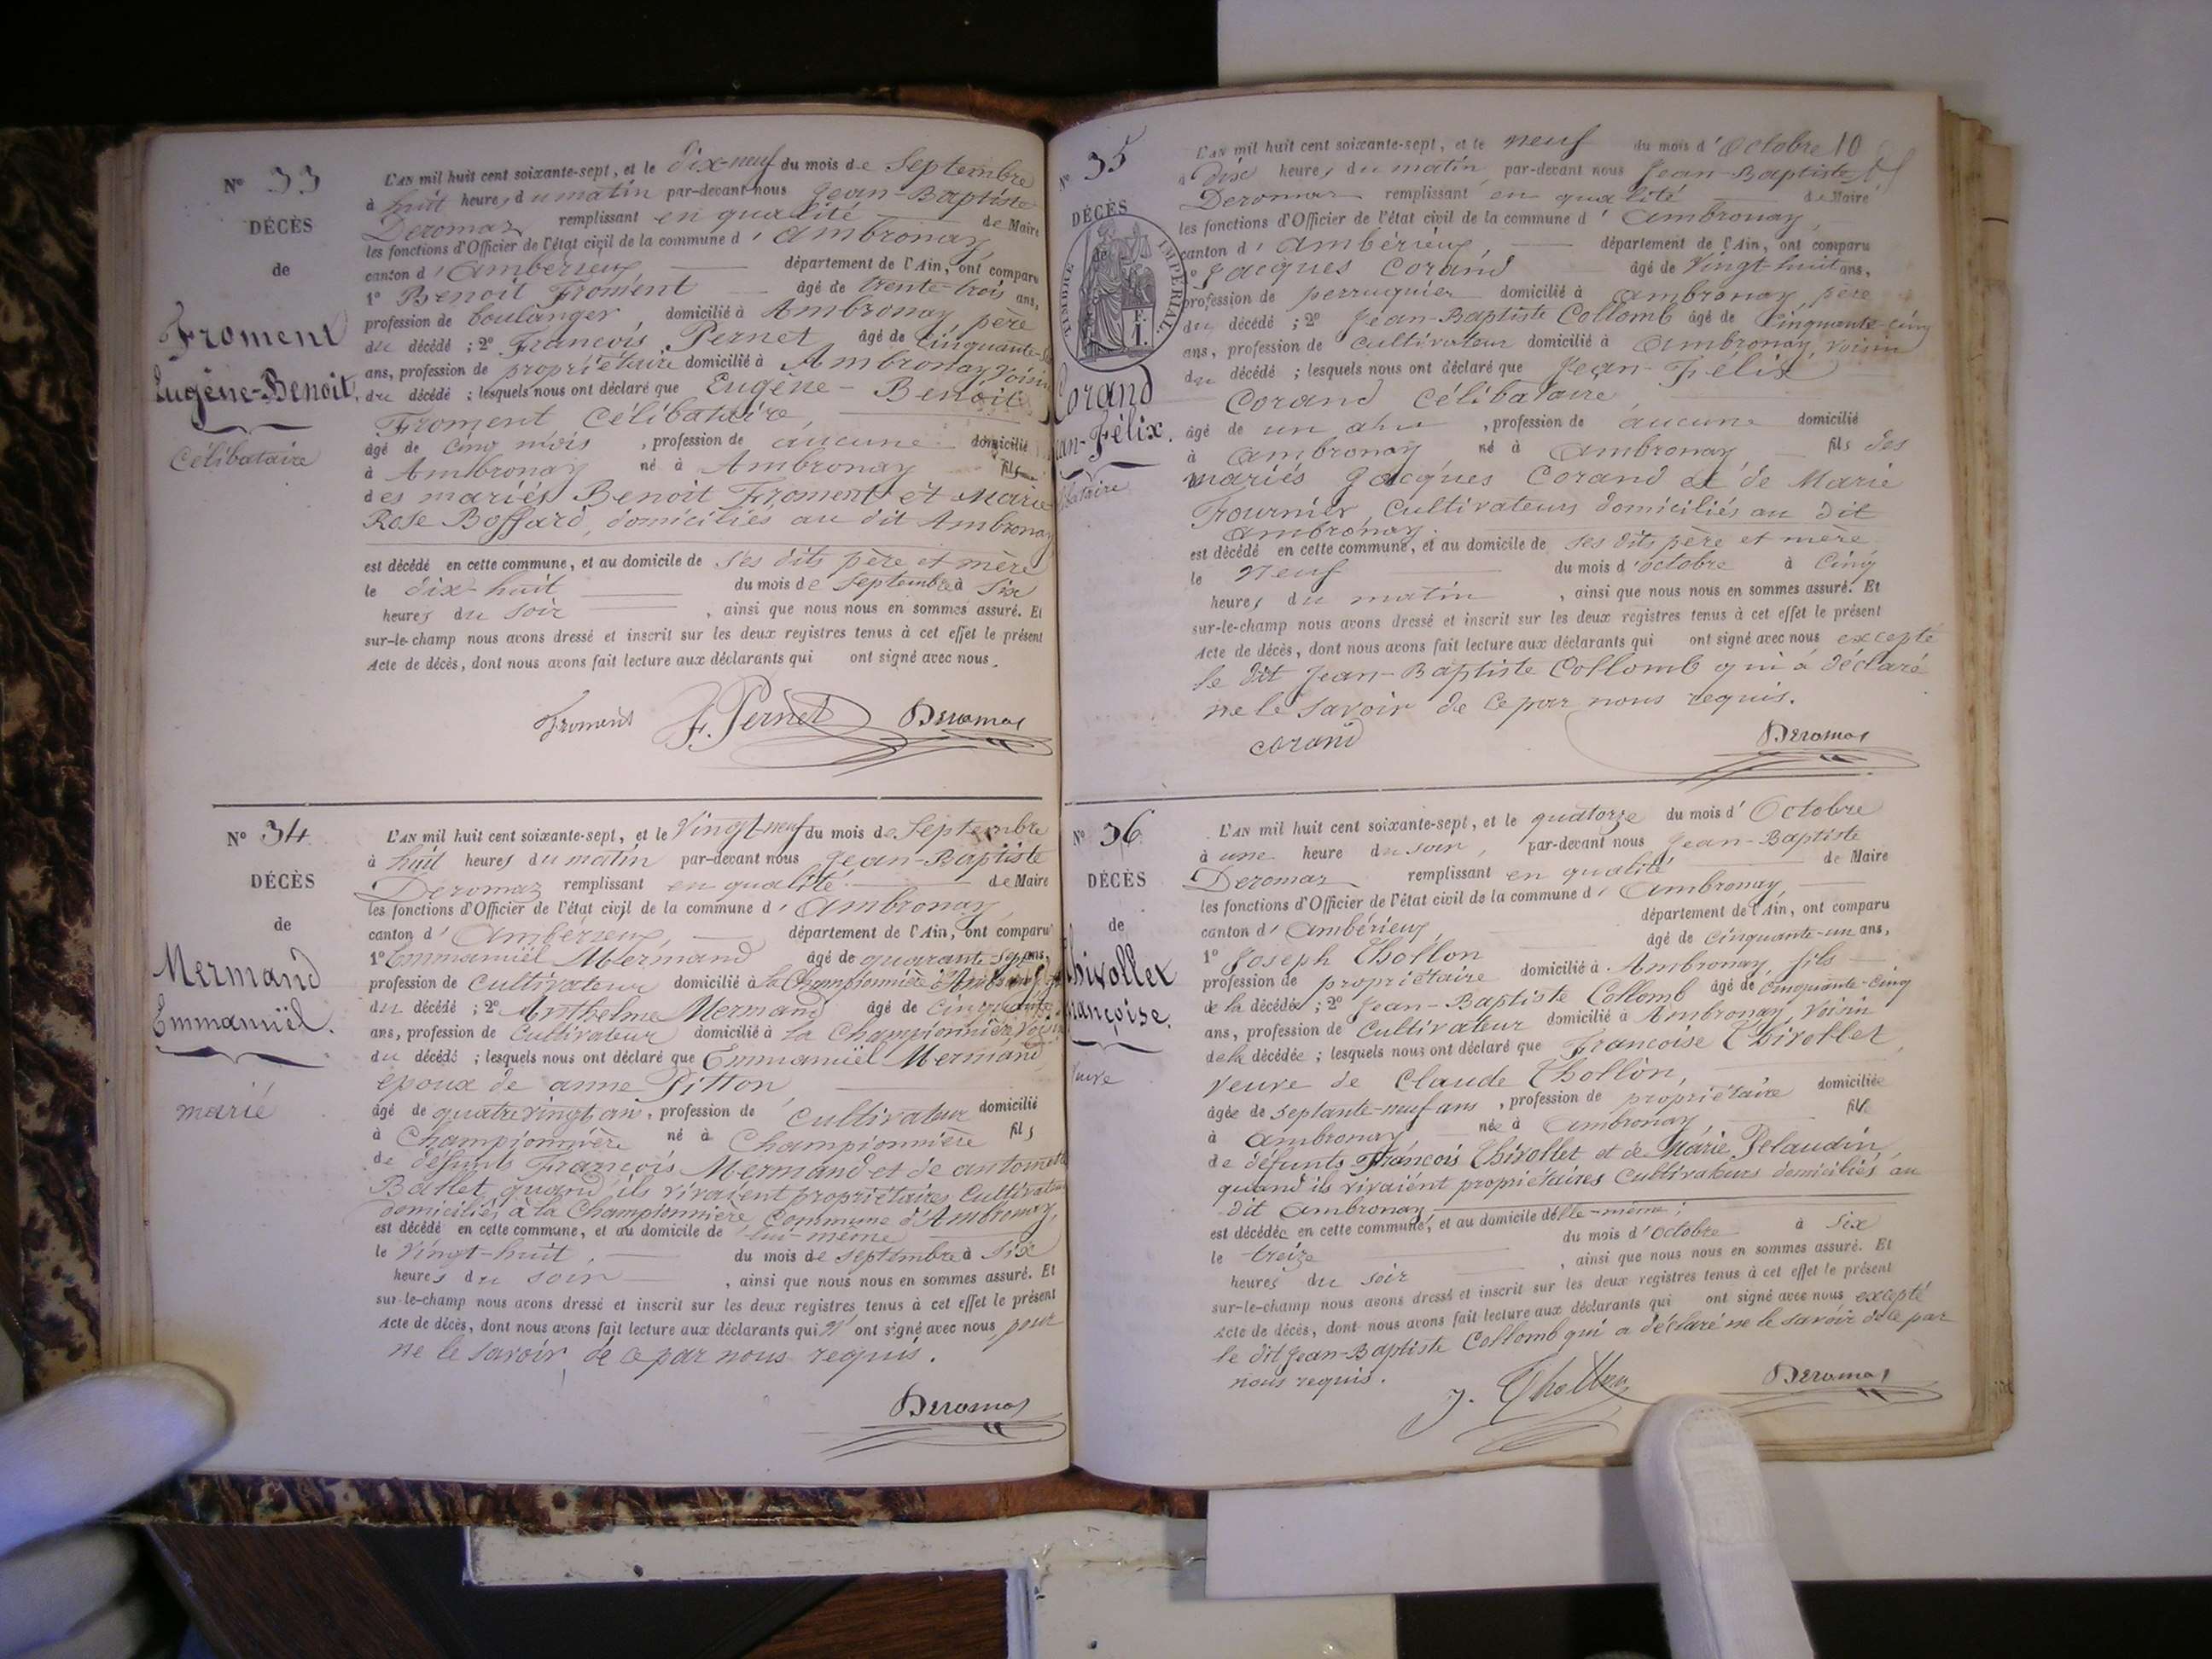 N° 33
DÉCÈS
de
Froment
Eugène-Benoit,
Célibataire
L'AN mil huit cent soixante-sept, et le dix-neuf du mois de Septembre
à huit heures du matin par-devant nous Jean-Baptiste
Deromas remplissant en qualité de Maire
les fonctions d'Officier de l'état civil de la commune d'Ambronay,
canton d'Ambérieux, département de l'Ain, ont comparu
1° Benoit Froment âgé de trente-trois ans,
profession de boulanger, domicilié à Ambronay, père
du décédé ; 2° François Pernet âgé de Cinquante-
ans, profession de propriétaire domicilié à Ambronay, voisin
du décédé ; lesquels nous ont déclaré que Eugène-Benoit
Froment Célibataire,
âgé de Cinq mois, profession de aucune domicilié
à Ambronay né à Ambronay fils
des mariés Benoit Froment et Marie
Rose Boffard, domiciliés au dit Ambronay
est décédé en cette commune, et au domicile de ses dits père et mère
le dix-huit du mois de Septembre à Six
heures du soir, ainsi que nous nous en sommes assuré. Et
sur-le-champ nous avons dressé et inscrit sur les deux registres tenus à cet effet le présent
Acte de décès, dont nous avons fait lecture aux déclarants qui ont signé avec nous.
Froment F. Pernet Deromas
N° 34
DÉCÈS
de
Mermand
Emmanuël.
marié
L'AN mil huit cent soixante-sept, et le Vingt-neuf du mois de Septembre
à huit heures du matin par-devant nous Jean-Baptiste
Deromas remplissant en qualité de Maire
les fonctions d'Officier de l'état civil de la commune d'Ambronay,
canton d'Ambérieux, département de l'Ain, ont comparu
1° Emmanuël Mermand âgé de quarante-sept ans,
profession de Cultivateur domicilié à la Championnière
du décédé ; 2° Anthelme Mermand âgé de cinquante
ans, profession de Cultivateur domicilié à la Championnière, voisin
du décédé ; lesquels nous ont déclaré que Emmanuël Mermand
époux de anne Pitton,
âgé de quatre vingt ans, profession de Cultivateur domicilié
à Championnière né à Championnière fils
de défunts François Mermand et de antoinette
Ballet quand ils vivaient propriétaires Cultivateurs
domiciliés à la Championnière, Commune d'Ambronay,
est décédé en cette commune, et au domicile de lui-même
le Vingt-huit, du mois de septembre à six
heures du soir, ainsi que nous nous en sommes assuré. Et
sur-le-champ nous avons dressé et inscrit sur les deux registres tenus à cet effet le présent
Acte de décès, dont nous avons fait lecture aux déclarants qui n'ont signé avec nous pour
ne le savoir de ce par nous requis.
Deromas
N° 35
DÉCÈS
de
TIMBRE IMPÉRIAL.
Corand
ean-Félix.
libataire
L'AN mil huit cent soixante-sept, et le neuf du mois d'Octobre 10
à dix heures du matin, par-devant nous Jean-Baptiste
Deromas remplissant en qualité de Maire
les fonctions d'Officier de l'état civil de la commune d'Ambronay,
canton d'Ambérieux, département de l'Ain, ont comparu
1° Jacques Corand âgé de Vingt-huit ans,
profession de perruquier domicilié à Ambronay, père
du décédé ; 2° Jean-Baptiste Collomb âgé de Cinquante-cinq
ans, profession de cultivateur domicilié à Ambronay, voisin
du décédé ; lesquels nous ont déclaré que Jean-Félix
Corand Célibataire,
âgé de un an, profession de aucune domicilié
à Ambronay, né à Ambronay fils des
mariés Jacques Corand et de Marie
Fournier, Cultivateurs domiciliés au dit
Ambronay.
est décédé en cette commune, et au domicile de ses dits père et mère
le neuf du mois d'octobre à Cinq
heures du matin, ainsi que nous nous en sommes assuré. Et
sur-le-champ nous avons dressé et inscrit sur les deux registres tenus à cet effet le présent
Acte de décès, dont nous avons fait lecture aux déclarants qui ont signé avec nous excepté
le dit Jean-Baptiste Collomb qui a déclaré
ne le savoir de ce par nous requis.
corand Deromas
N° 36
DÉCÈS
de
Thivollet
rançoise.
Veuve
L'AN mil huit cent soixante-sept, et le quatorze du mois d'Octobre
à une heure du soir, par-devant nous Jean-Baptiste
Deromas remplissant en qualité de Maire
les fonctions d'Officier de l'état civil de la commune d'Ambronay,
canton d'Ambérieux, département de l'Ain, ont comparu
1° Joseph Thollon âgé de cinquante-un ans,
profession de propriétaire domicilié à Ambronay, fils
de la décédée ; 2° Jean-Baptiste Collomb âgé de cinquante-cinq
ans, profession de Cultivateur domicilié à Ambronay, voisin
de la décédée ; lesquels nous ont déclaré que Françoise Thivollet,
veuve de Claude Thollon,
âgée de septante-neuf ans, profession de propriétaire domiciliée
à Ambronay née à Ambronay, fille
de défunts François Thivollet et de Marie Pelaudin,
quand ils vivaient propriétaires Cultivateurs domiciliés au
dit Ambronay,
est décédée en cette commune, et au domicile d'elle-même ;
le treize du mois d'Octobre à Six
heures du soir, ainsi que nous nous en sommes assuré. Et
sur-le-champ nous avons dressé et inscrit sur les deux registres tenus à cet effet le présent
Acte de décès, dont nous avons fait lecture aux déclarants qui ont signé avec nous excepté
le dit Jean-Baptiste Collomb qui a déclaré ne le savoir de ce par
nous requis.
J. Thollon Deromas